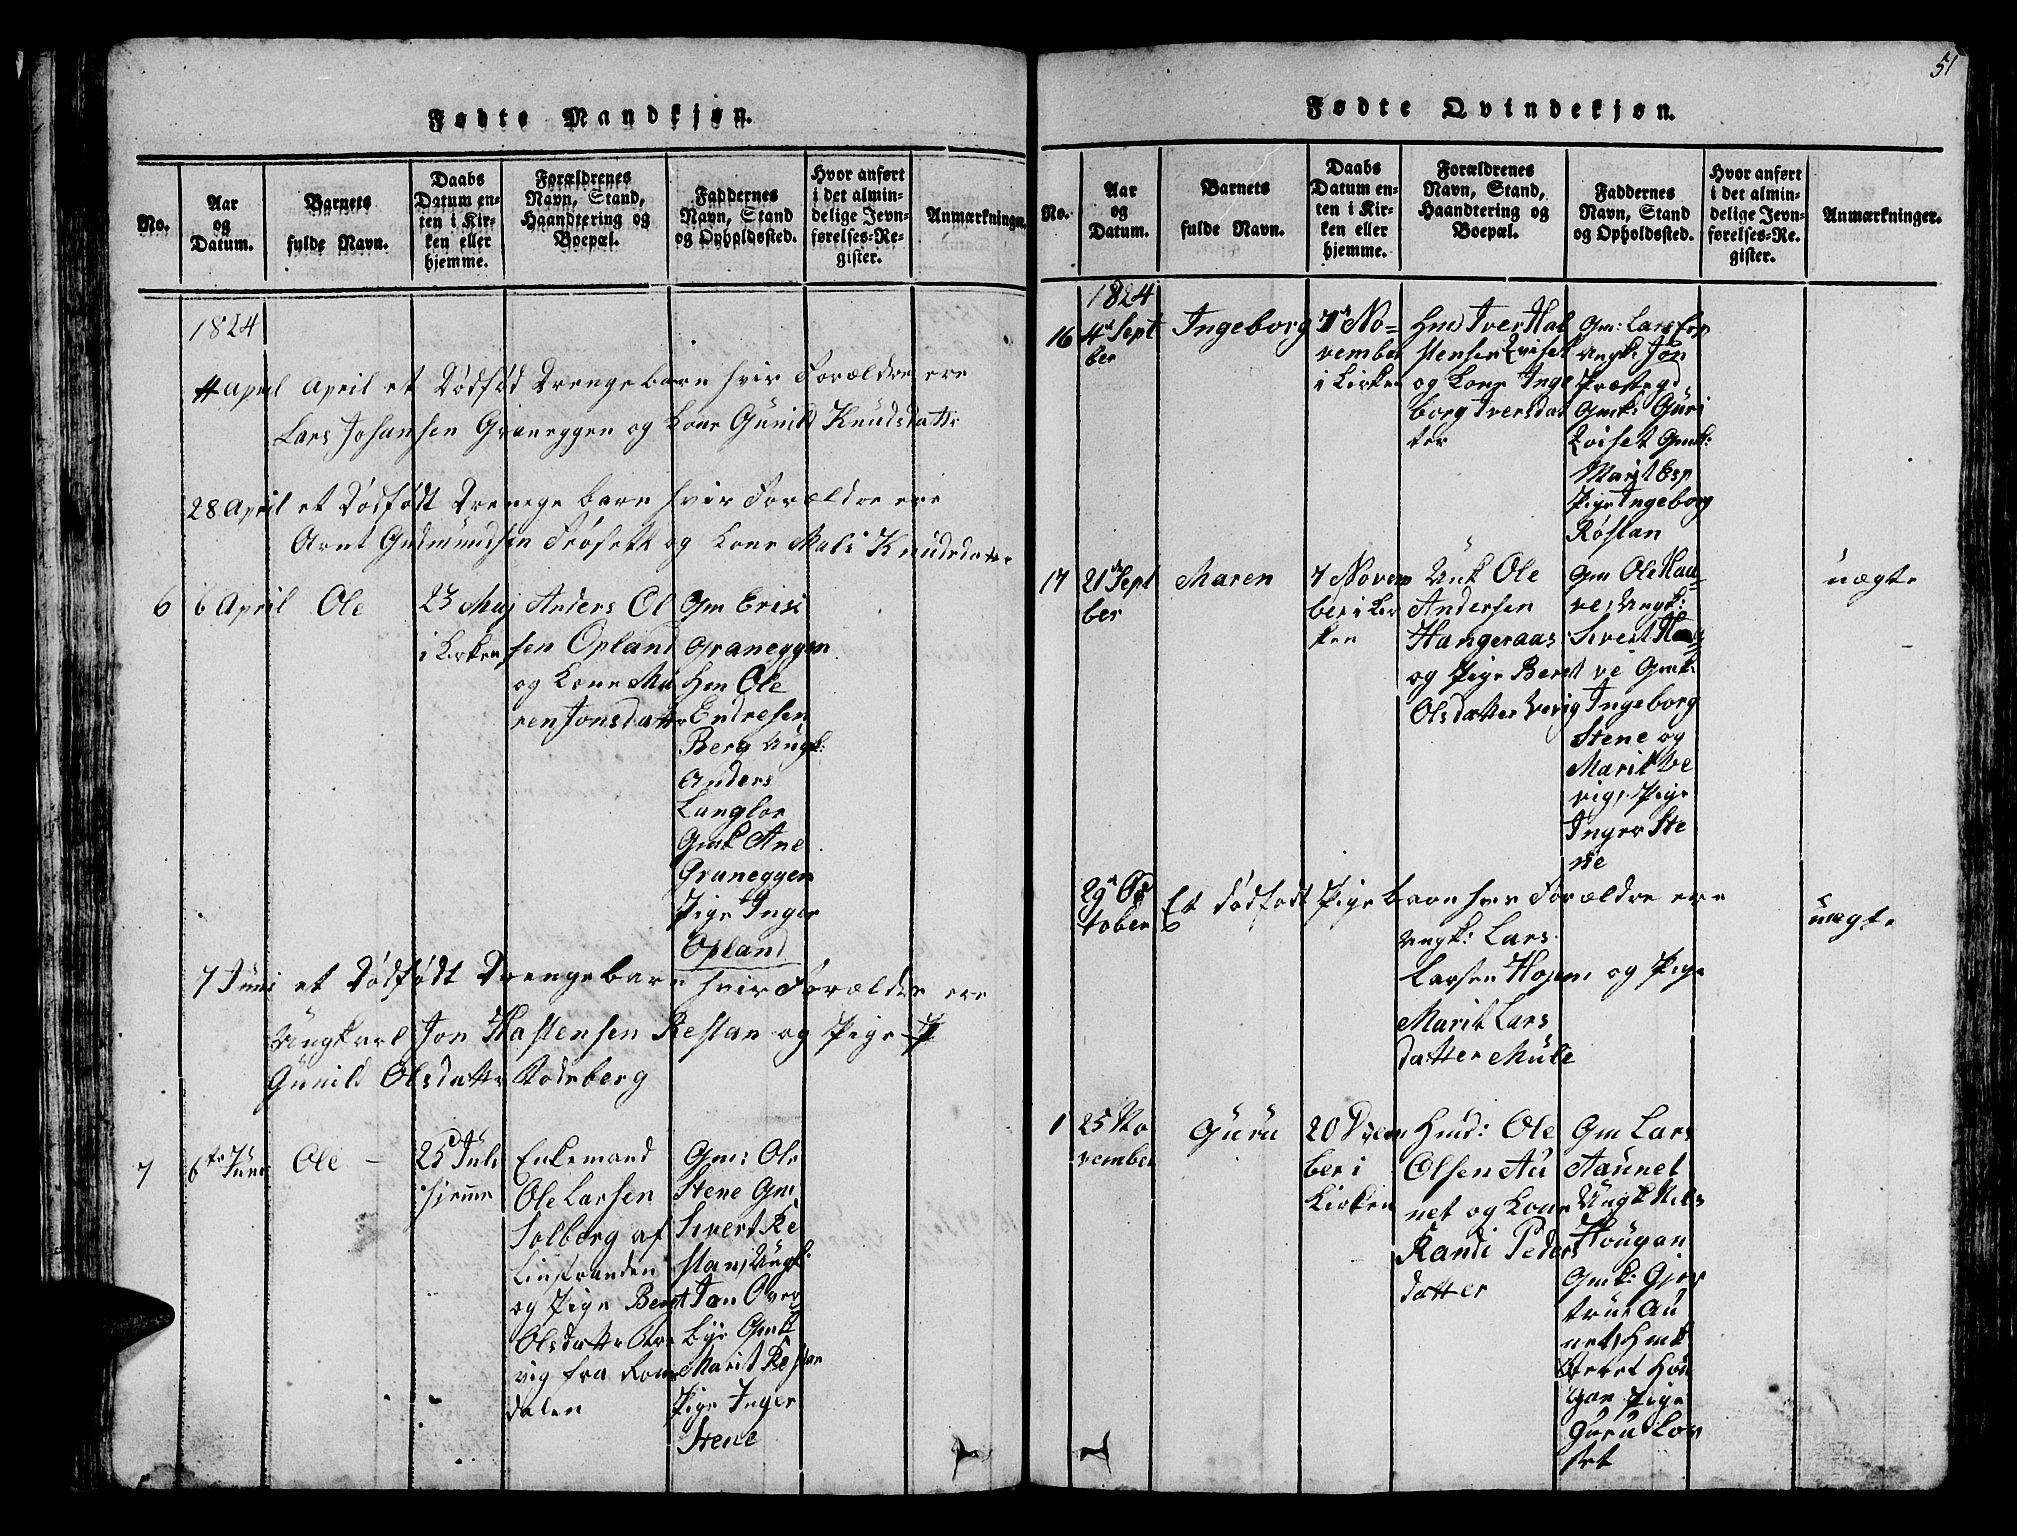 51
Fødte Mandkjøn.
No.
Aar
og
Datum.
Barnets
fulde Navn.
Daabs
Datum en-
ten i Kir-
ken eller
hjemme.
Forældrenes
Navn, Stand,
Haandtering og
Boepæl.
Faddernes
Navn, Stand
og Opholdssted.
Hvor anført
i det almin-
delige Jevn-
førelses-Re-
gister.
Anmærkninger.
1824
4 April April et Dødfød Drengebarn hvis Forældre ere
Lars Johansen Graneggen og Kone Gunild Knudsdatter
28 April et Dødfødt Drenege barn hvis Forældre ere
Arnt Gudmundsen Frøseth og Kone Mali Knudsdatter
6
6 April
Ole
23 Maj
i Kirken
Anders Ol
sen Opland
og Kone Ma
ren Jonsdatter
Gm Erik
Graneggen
Hm Ole
Endresen
Berg Ungk:
Anders
Langloe
Gmk Ane
Graneggen
Pige Inger
Opland
7 Juni et Dødfødt Drengebarn hvis Forældre ere
Ungkarl Jon Hastensen Restan og Pige
Gunild Olsdatter Rodeberg
7
6te Juni
Ole
25 Juli
hjemme
Enkemand
Ole Larsen
Solberg af
Linstranden
og Pige Beret
Olsdatter
vig fra Rom
dalen
Gm: Ole
Stene Gm,
Sivert Re
stan, Ungk:
Jon Over
Bye Gmk
Marit Restan
Pige Inger
Stene
Fødte Qvindekjøn.
No.
Aar
og
Datum.
Barnets
fulde Navn.
Daabs
Datum en-
ten i Kir-
ken eller
hjemme.
Forældrenes
Navn, Stand,
Haandtering og
Boepæl.
Faddernes
Navn, Stand
og Opholdssted.
Hvor anført
i det almin-
delige Jevn-
førelses-Re-
gister.
Anmærkninger.
1824
16
4d Sept
ber
Ingeborg
7d No-
vember
i Kirken
Hm Iver Hal
stensen Qviset
og Kone Inge
borg Iversdat
ter
Gm: Lars Esp
Ungk: Jon
Præstegd,
Gmk: Guri
Qviset Gmk:
Marit Esp
Pige Ingeborg
Røstan
17
21d Sept
ber
Maren
7 Novem
ber i Kir
ken
Unk Ole
Andersen
Hangeraas
og Pige Beret
Olsdatter Vevig
Gm Ole Hau-
ve, Ungk:
Sivert Hau
ve Gmk:
Ingeborg
Stene og
Marit Ve
vig, Pige
Inger Ste
ne
uægte
29d Oc
tober
Et dødfødt Pigebarn hvis Forældre ere
Ungk: Lars
Larsen Hojem og Pige
Marit Lars
datter Mule
uægte
1
25 No
vember
Guru
20 Decem
ber i
Kirken
Hmd: Ole
Olsen Au
net og Kone
Randi Peders
datter
Gm Lars
Aaunet
Ungk Nils
Hougan
Gmk: Gjer
true Au
net, Hmk
Beret Hou
gan Pige
Guru Lov
set